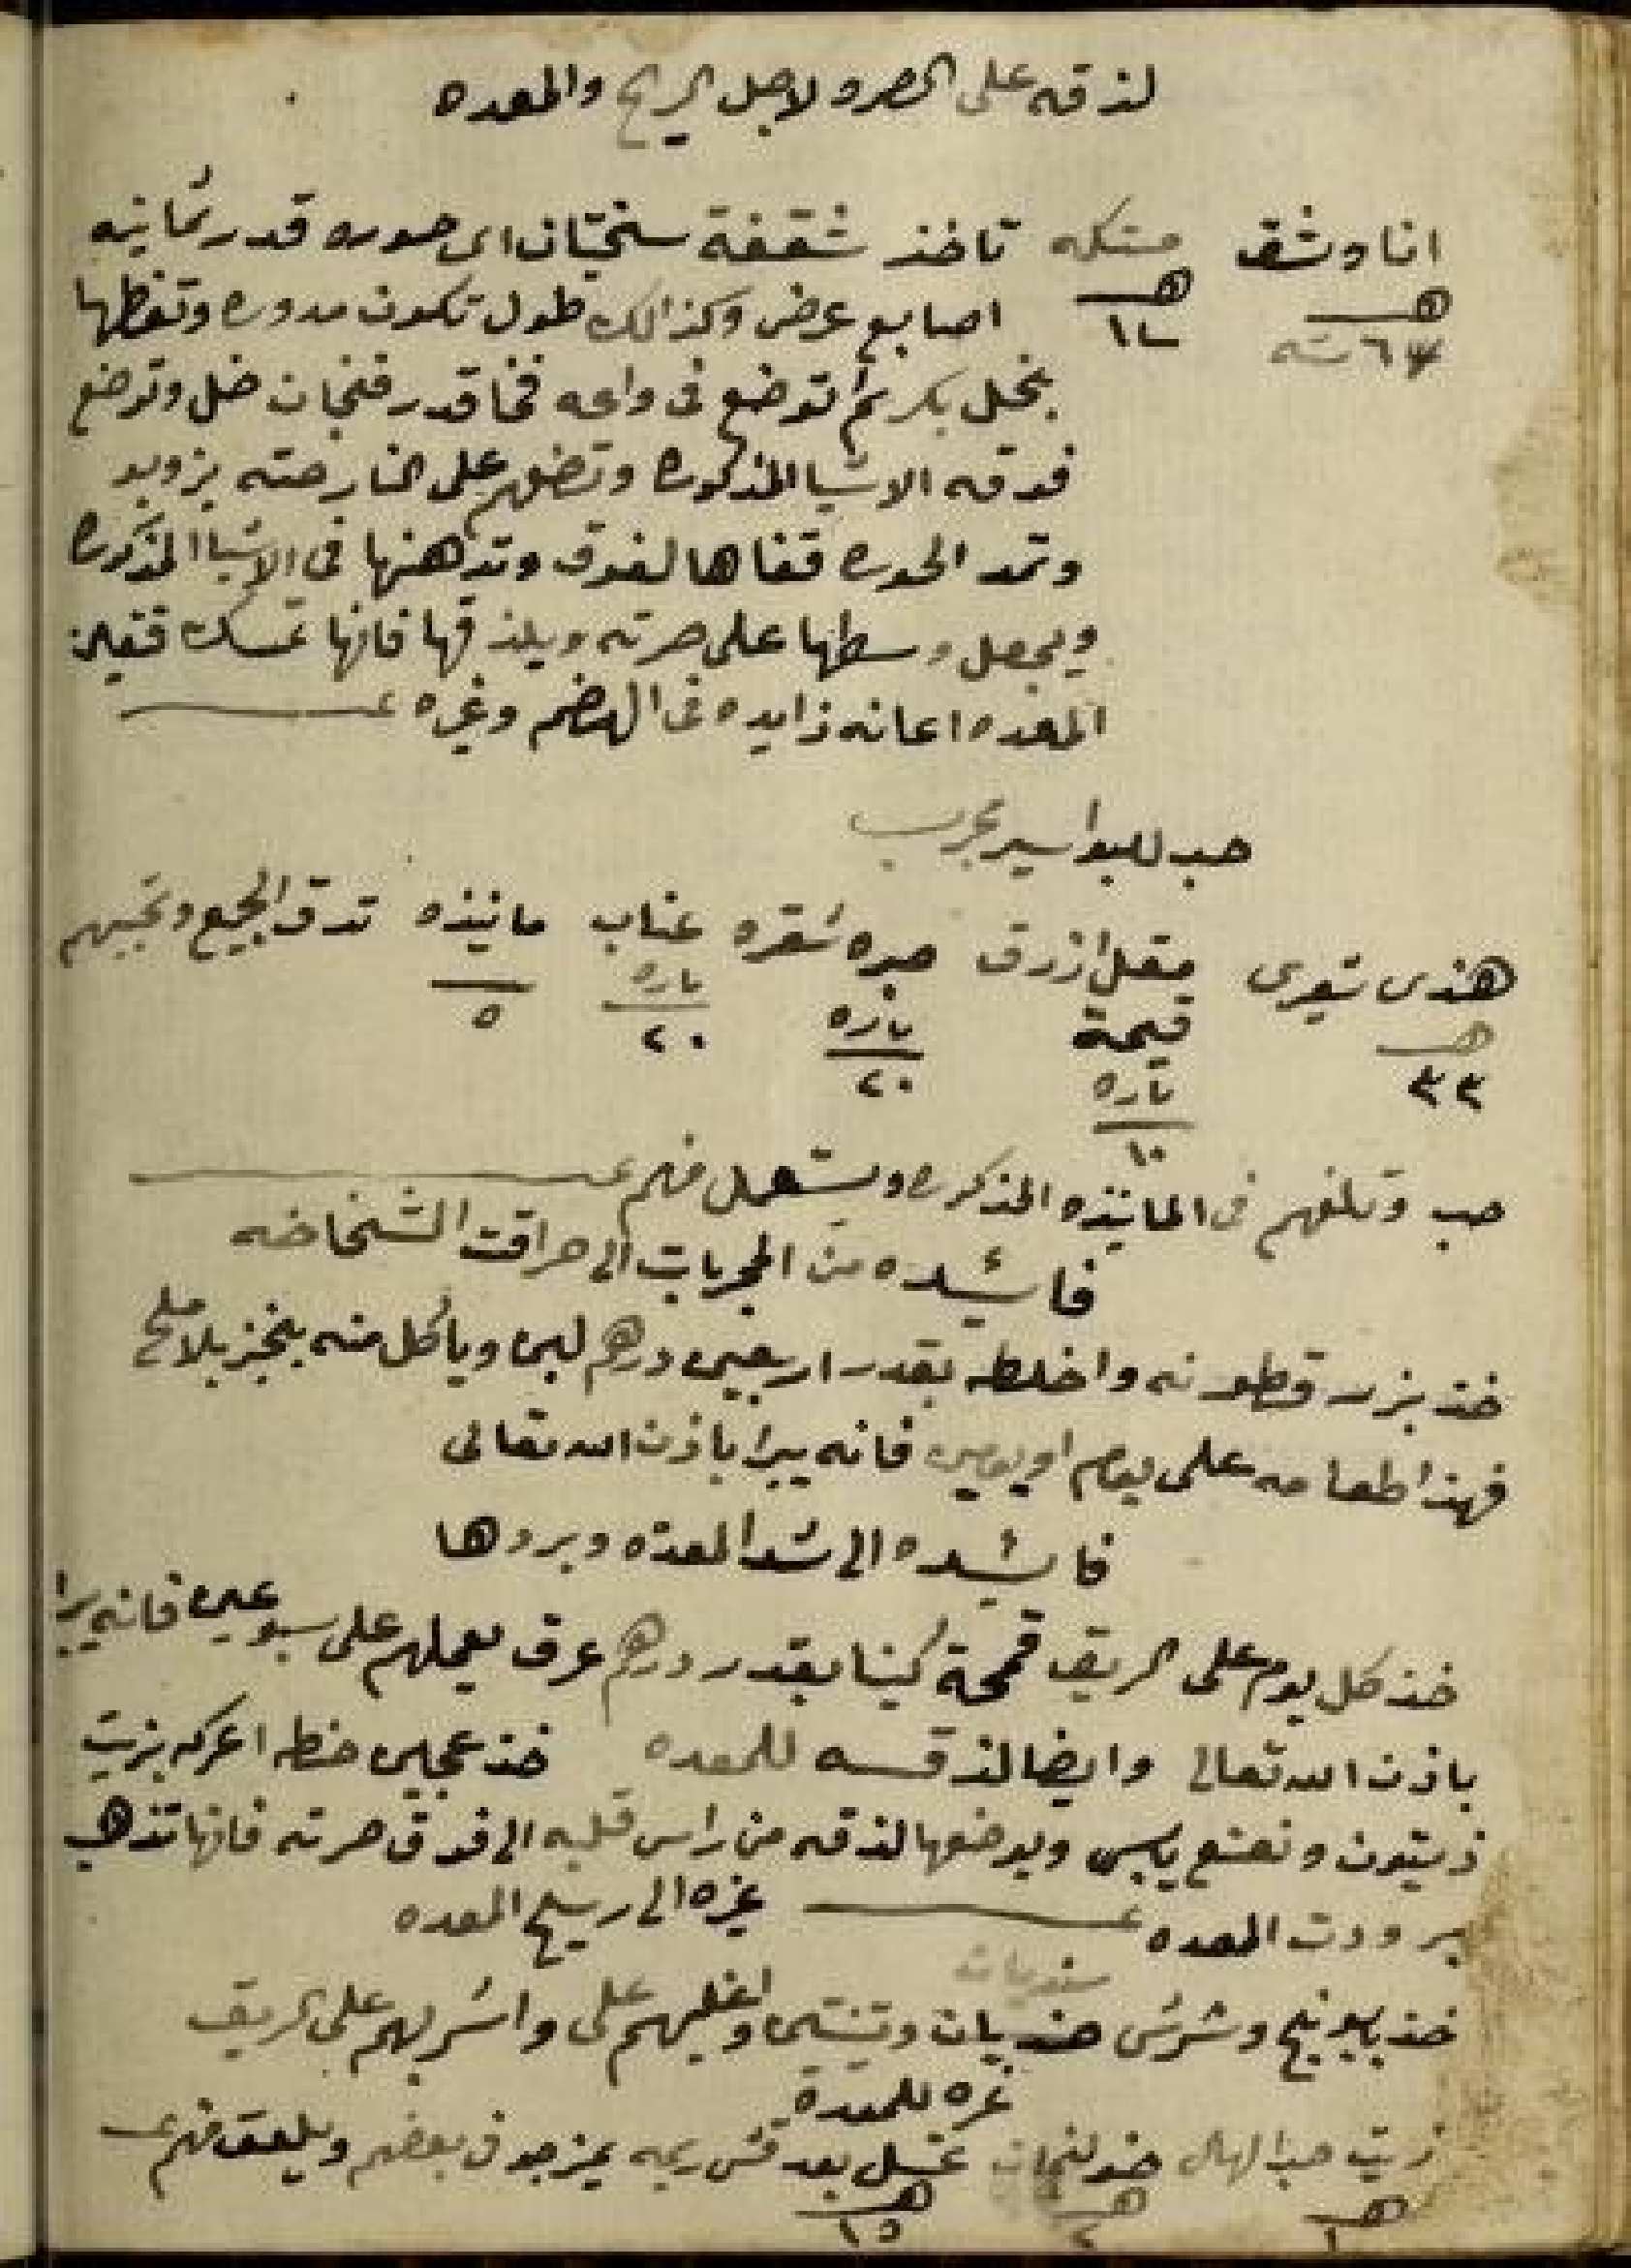 لذقه على الصره لاجل الريح والمعده
اناوشق مستكه تاخذ شقفة سختيان اى حوره قدر ثمانيه
اصابع عرض وكذالك طول تكون مدوره وتغطها
٦ سته ١٢
بخل بكر ثم توضع فى واعه فخا قدر فنجان خل وتوضع
فوقه الاشيا المذكوره وتضعهم على النار حته يزوبو
وتمد الحوره قفاها لفوق وتدهنها فى الاشيا المذكوره
ويجعل وسطها على صرته ويلذقها فانها تمسك
المعده اعانه زايده فى الهضم وغيره
حب للبواسير مجرب
هندى شعيرى مقل ازرق صبره شقره عناب مانيذه تدق الجميع وتحببهم
قيمة
باره باره باره
٣٣ ١٠ ٢٠ ٢٠ ٥
حب وتلفهم فى المانيذه المذكوره ويستعمل منهم
فايده من المجربات الى حراقت الشخاخه
خذ بزر قطونه واخلطه بقدر اربعين درهم لبن وياكل منه بخبز بلا ملح
فهذا طعامه على يوم او يومين فانه يبرا باذن الله تعالى
فايده الى شد المعده وبردها
خذ كل يوم على الريق قمحة كينا بقدر درهم عرق يعملهم على سبوعين فانه يبرا
باذن الله تعالى وايضا لذقه للمعده خذ عجين حنطه اعركه بزيت
زيتون ونعنع يابس ويوضعها لذقه من راس قلبه الى فوق صرته فانها تذهب
برودت المعده غيره الى ريح المعده
سنديان
خذ بابونج وشرش هندبان واغليهم على واشربهم على الريق
غيره للمعدة
زيت حب الهال خولنجان عسل بعد قش ريمه يمزجو فى بعضهم ويلعق منهم
١ ٢ ١٥